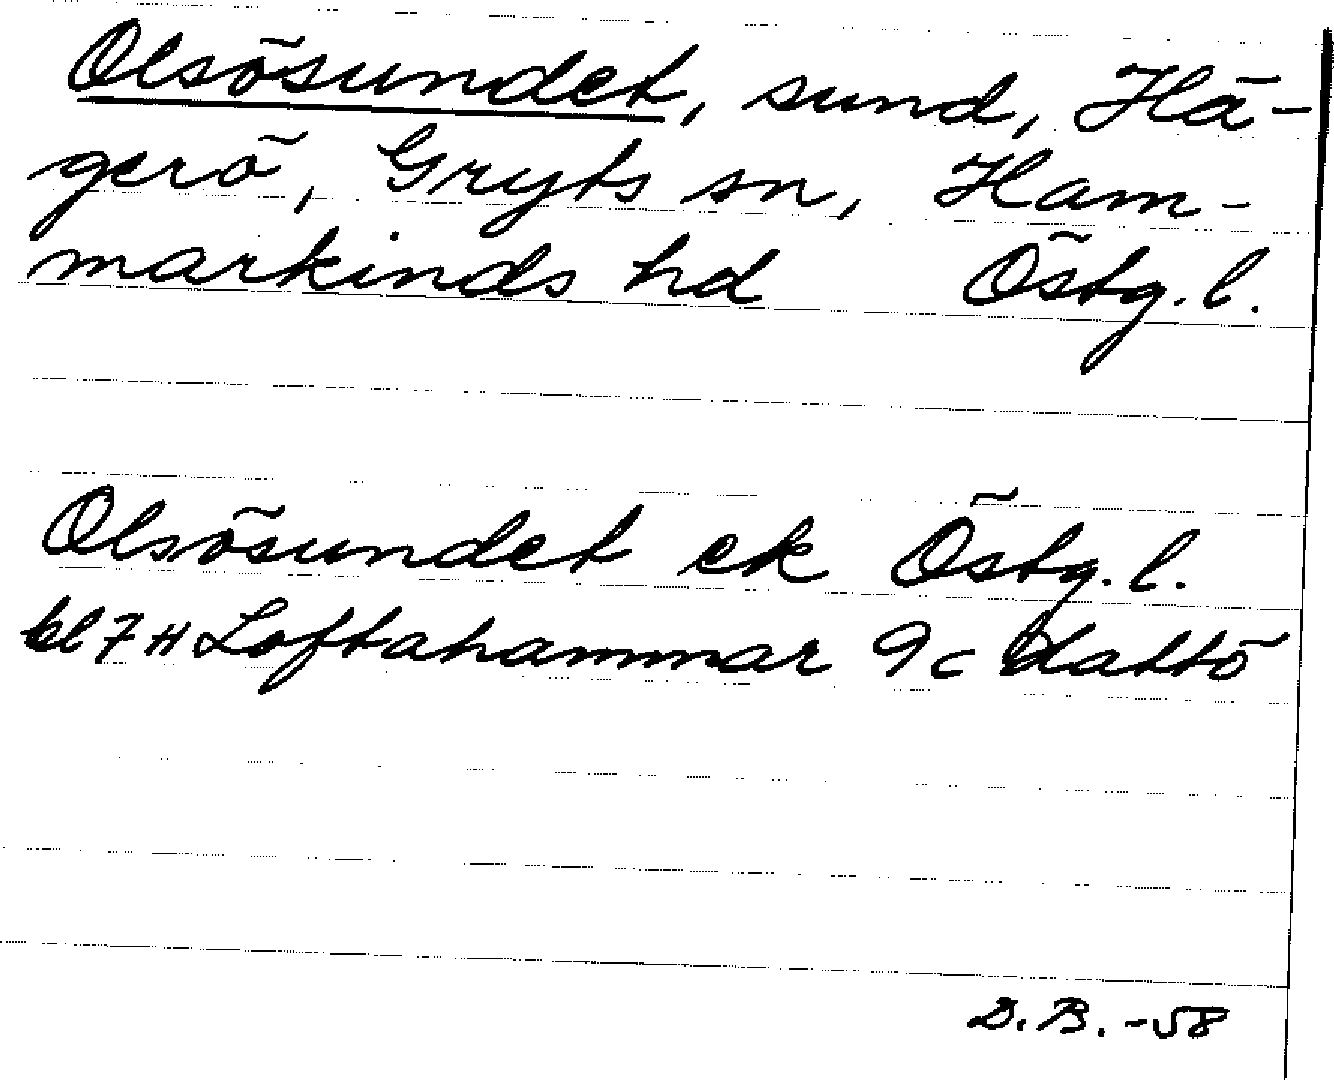 Olsösundet, sund, Hä-
gerö, Gryts sn, Ham-
markinds hd Östg. l.
Olsösundet ek Östg. l.
bl 7H Loftahammar 9c Dattö
D. B. -58